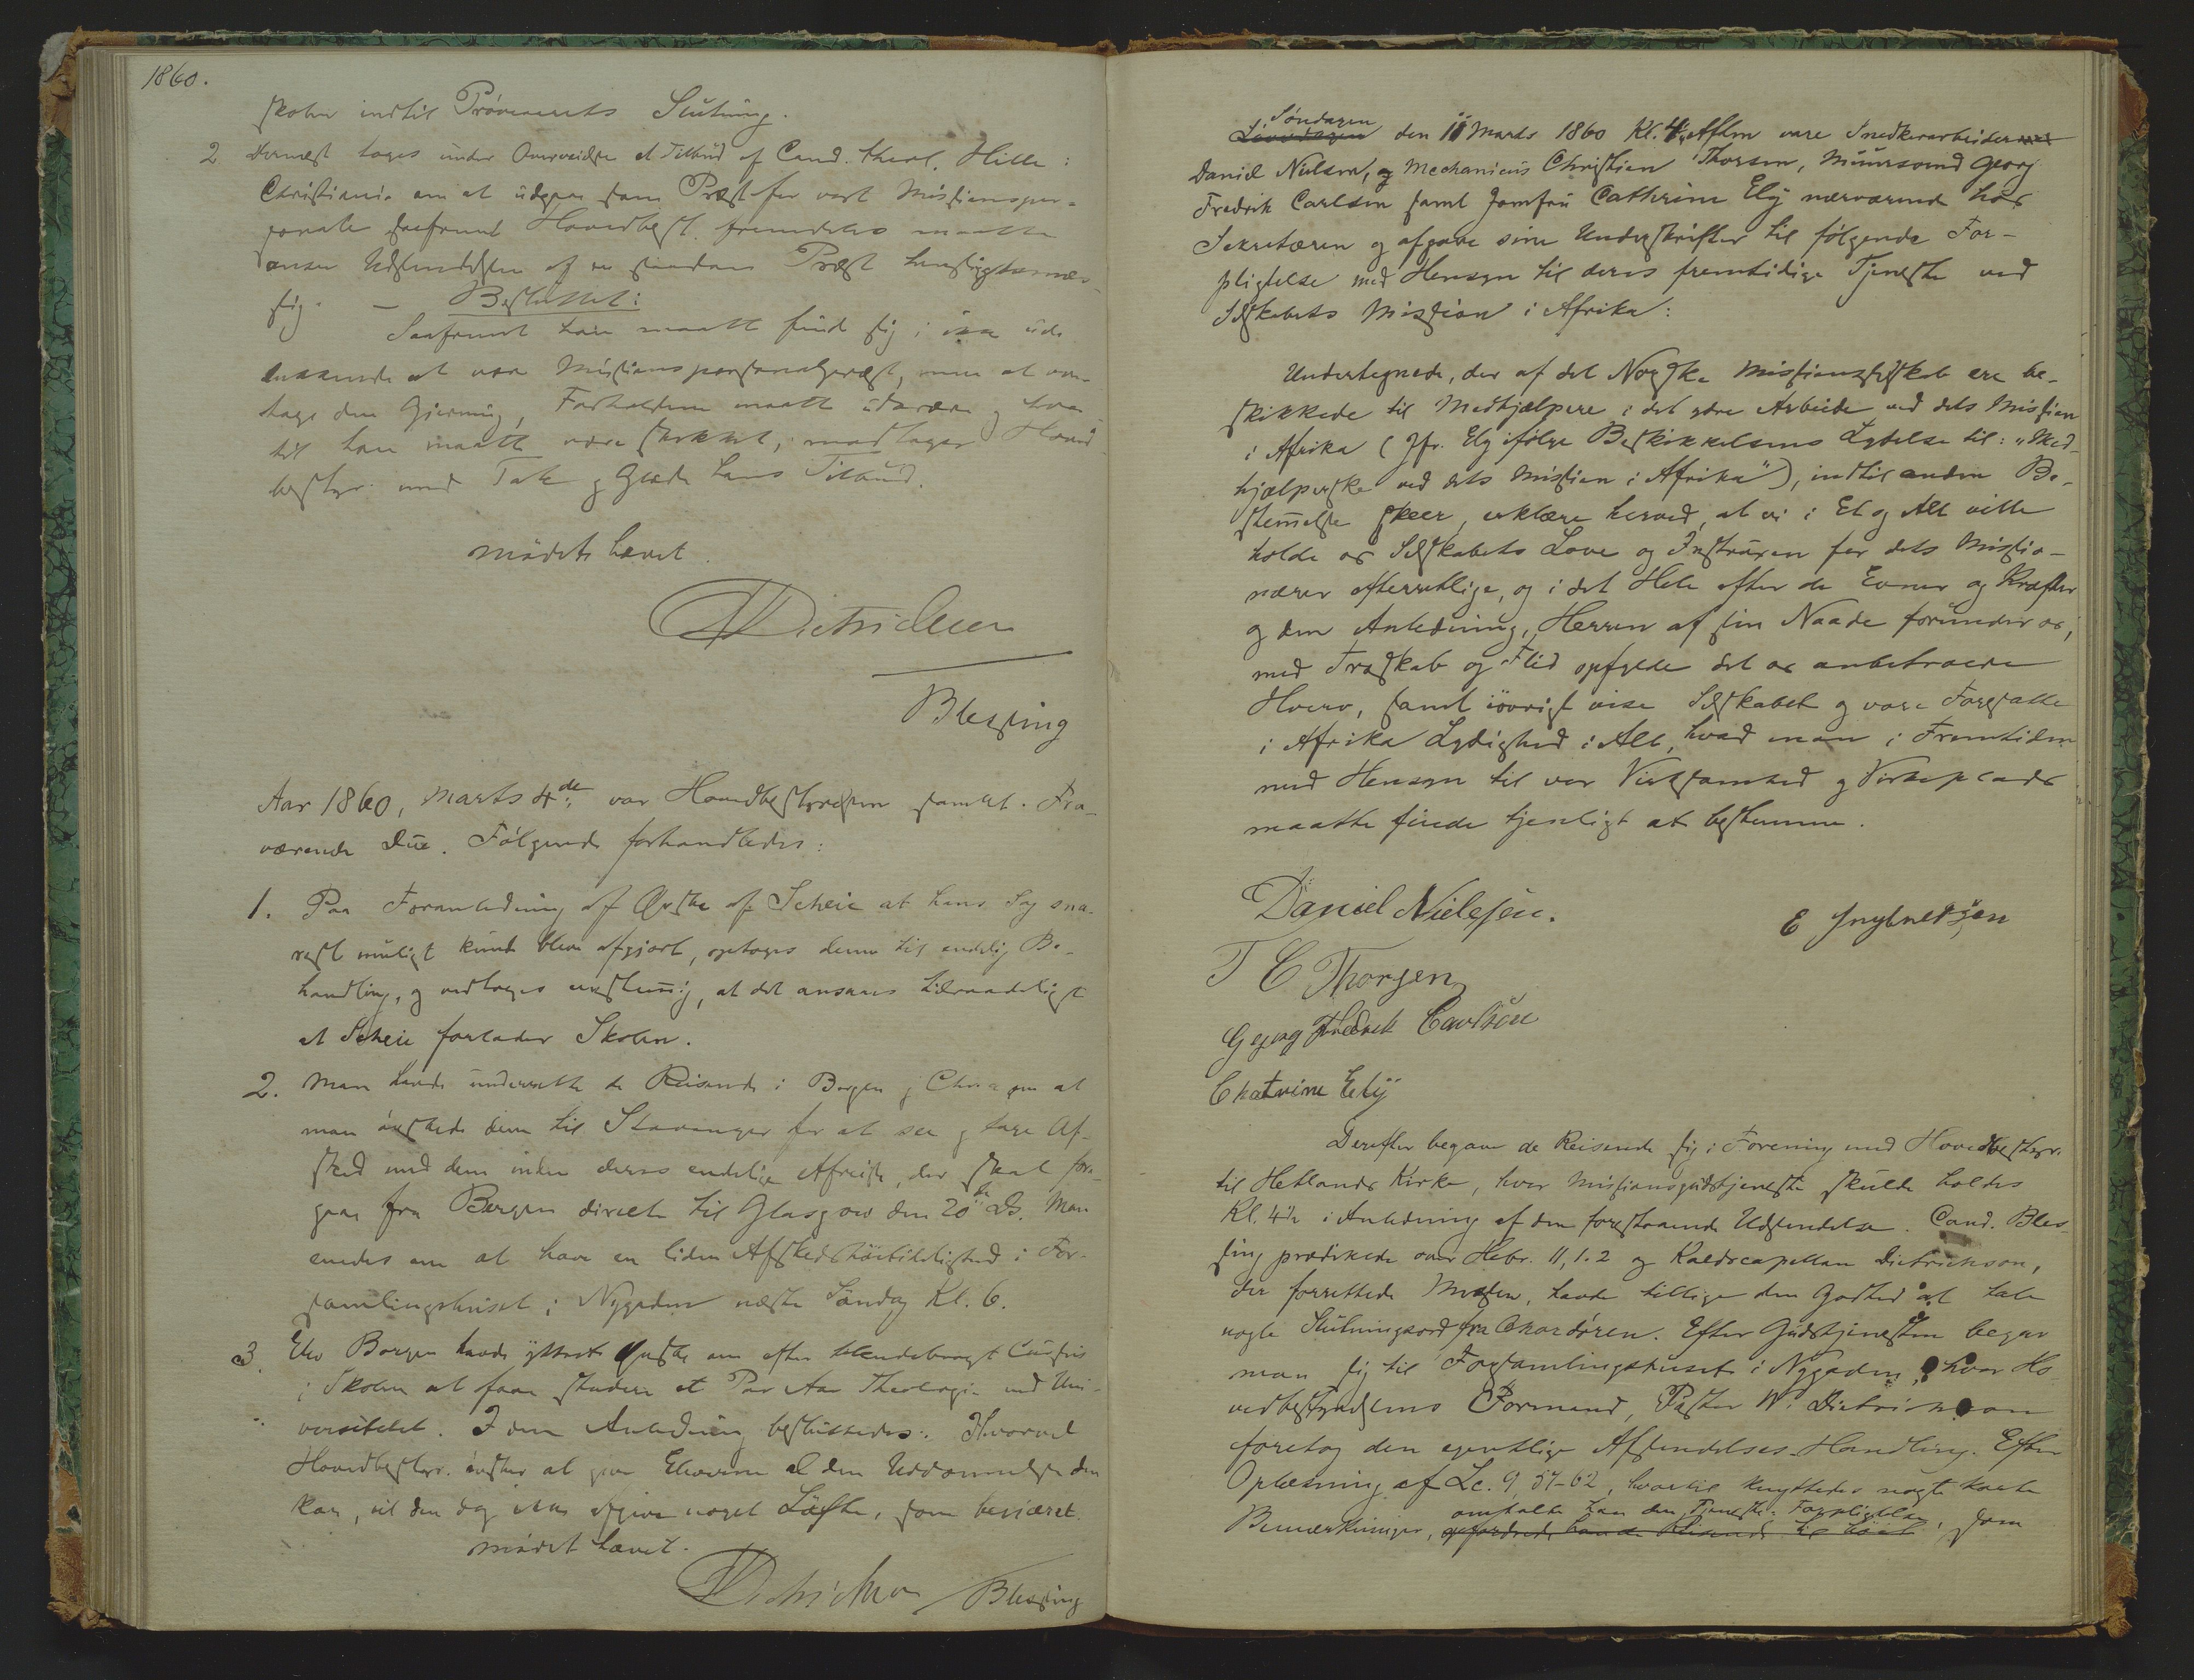 1860.
skolen indtil Prøveaarets Slutning.
2 Dernæst toges under Overveielse et Tilbud af Cand. theol. Hille i
Christiania om at udgaa som Præst for vort Missionsper-
sonale saafremt Hovedbest. fremdeles maatte
anse Udsendelsen af en saadan Præst hensigtsmæs-
sig. — Besluttet:
Saafremt han maatte finde sig i ikke ude-
lukkende at være Missionspersonalpræst, men at over-
tage den Gjerning, Forholdene maatte udkræve og hvor-
til han maatte være skikket, modtager Hoved-
bestyr. med Tak og Glæde hans Tilbud.
Mödet hævet.
W Dietrichson
Blessing
Aar 1860, Marts 4de var Hovedbestyrelsen samlet. Fra-
værende Due. Følgende forhandledes:
1. Paa Foranledning af Ønske af Scheie at hans Sag sna-
rest muligt kunde blive afgjort, optoges denne til endelig Be-
handling, og vedtoges enstemig, at det ansaaes tilraadeligt
at Scheie forlader Skolen.
2. Man havde underrettet de Reisende i Bergen og Chra om at
man ønskede dem til Stavanger for at see og tage Af-
sked med dem inden deres endelige Afreise, der skal fore-
gaa fra Bergen directe til Glasgow den 20de ds. Man
enedes om at have en liden Afskedshöitidelighed i For-
samlingshuset i Nygaden næste Søndag Kl. 6.
3. Elev Borgen havde yttret Ønske om efter tilendebragt Cursus
i Skolen at faae studere et Par Aar Theologie ved Uni-
versitetet. I den Anledning besluttedes: Hvorvel
Hovedbestyr. ønsker at give Eleverne al den Uddannelse den
kan, vil den dog ikke afgive noget Løfte, som begjæret.
Mødet hævet.
W Dietrichson Blessing
Søndagen
Løverdagen den 11 Marts 1860 Kl. 4 Aftm vare Snedkerarbeider
Daniel Nielsen, og Mechanicus Christian Thorsen, Muursvend Georg
Fredrik Carlsen samt Jomfru Cathrine Ely nærværende hos
Sekretæren og afgave sine Underskrifter til følgende For-
pligtelse med Hensyn til deres fremtidige Tjeneste ved
Selskabets Mission i Afrika:
Undertegnede, der af det Norske Missionsselskab ere be-
skikkede til Medhjælpere i det ydre Arbeide ved dets Mission
i Afrika (Jfr. Ely ifølge Beskikkelsens Lydelse til: "Med-
hjælperske ved dets Mission i Afrika"), indtil anden Be-
stemelse skeer, erklære herved, at vi i Et og Alt ville
holde os Selskabets Love og Instruxen for dets Missio-
nærer efterrettlige, og i det Hele efter de Evner og Kræfter
og den Anledning, Herren af sin Naade forunder os,
med Troskab og Flid opfylde det os anbetroede
Hverv, samt iøvrigt vise Selskabet og vore Foresatte
i Afrika Lydighed i Alt, hvad man i Fremtiden
med Hensyn til vor Virksomhed og Virkeplads
maatte finde tjenligt at bestemme.
Daniel Nielsen. E Ingebretsen
T C Thorsen
Georg Fredrik Carlsen
Chatrine Ely
Derefter begave de Reisende sig i Forening med Hovedbestyr.
til Hetlands Kirke, hvor Missionsgudstjeneste skulde holdes
Kl. 4½ i Anledning af den forestaaende Udsendelse. Cand. Bles-
sing prædikede over Hebr. 11, 1.2 og Kaldscapellan Dietrichson,
der forrettede Messen, havde tillige den Godhed at tale
nogle Slutningsord fra Chordøren. Efter Gudstjenesten begav
man sig til Forsamlingshuset i Nygaden, hvor Ho-
vedbestyrelsens Formand, Pastor W. Dietrichson
foretog den egentlige Afsendelses-Handling. Efter
Oplæsning af Lc. 9, 57-62, hvortil knyttedes nogle korte
omtalte han den Tjeneste-Forpligtelse,
Bemærkninger, opfordrede han de Reisende til høit som